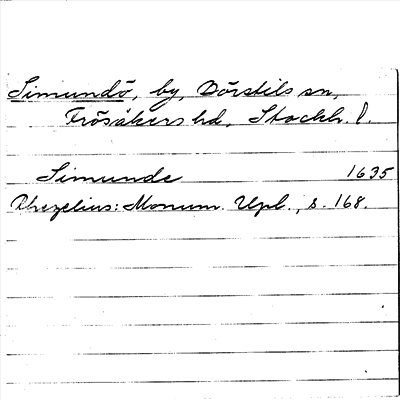 Simundö, by, Börstils sn,
Frösåkers hd, Stockh. l.
Simunde 1635
Rhezelius: Monum. Upl., s. 168.